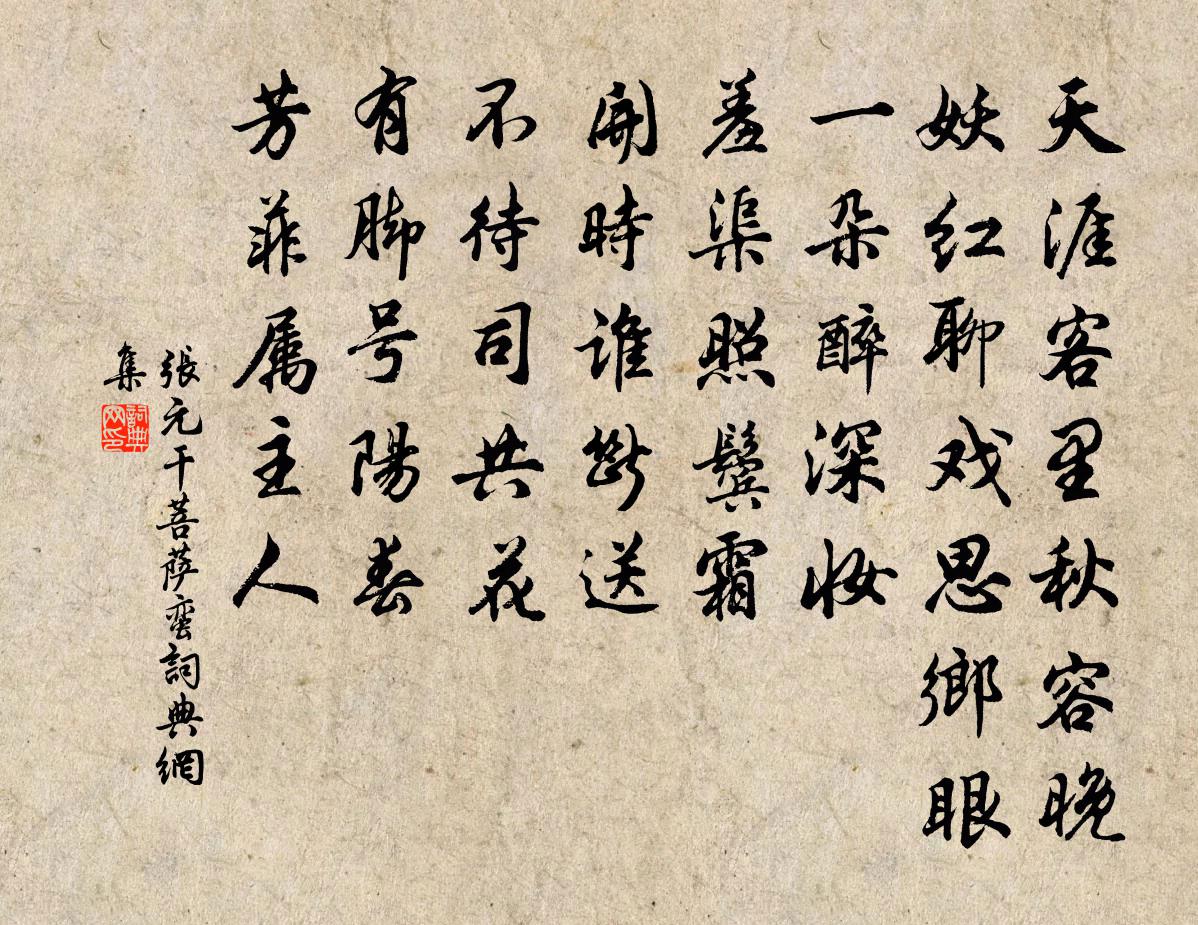 天涯客里秋容晚
妖红聊戏思鄉眼
一朵醉深妆
羞渠照鬓霜
開時谁断送
不待司共花
有脚号陽春
芳菲属主人
張元干菩萨蛮詞典網
集
詞典网印